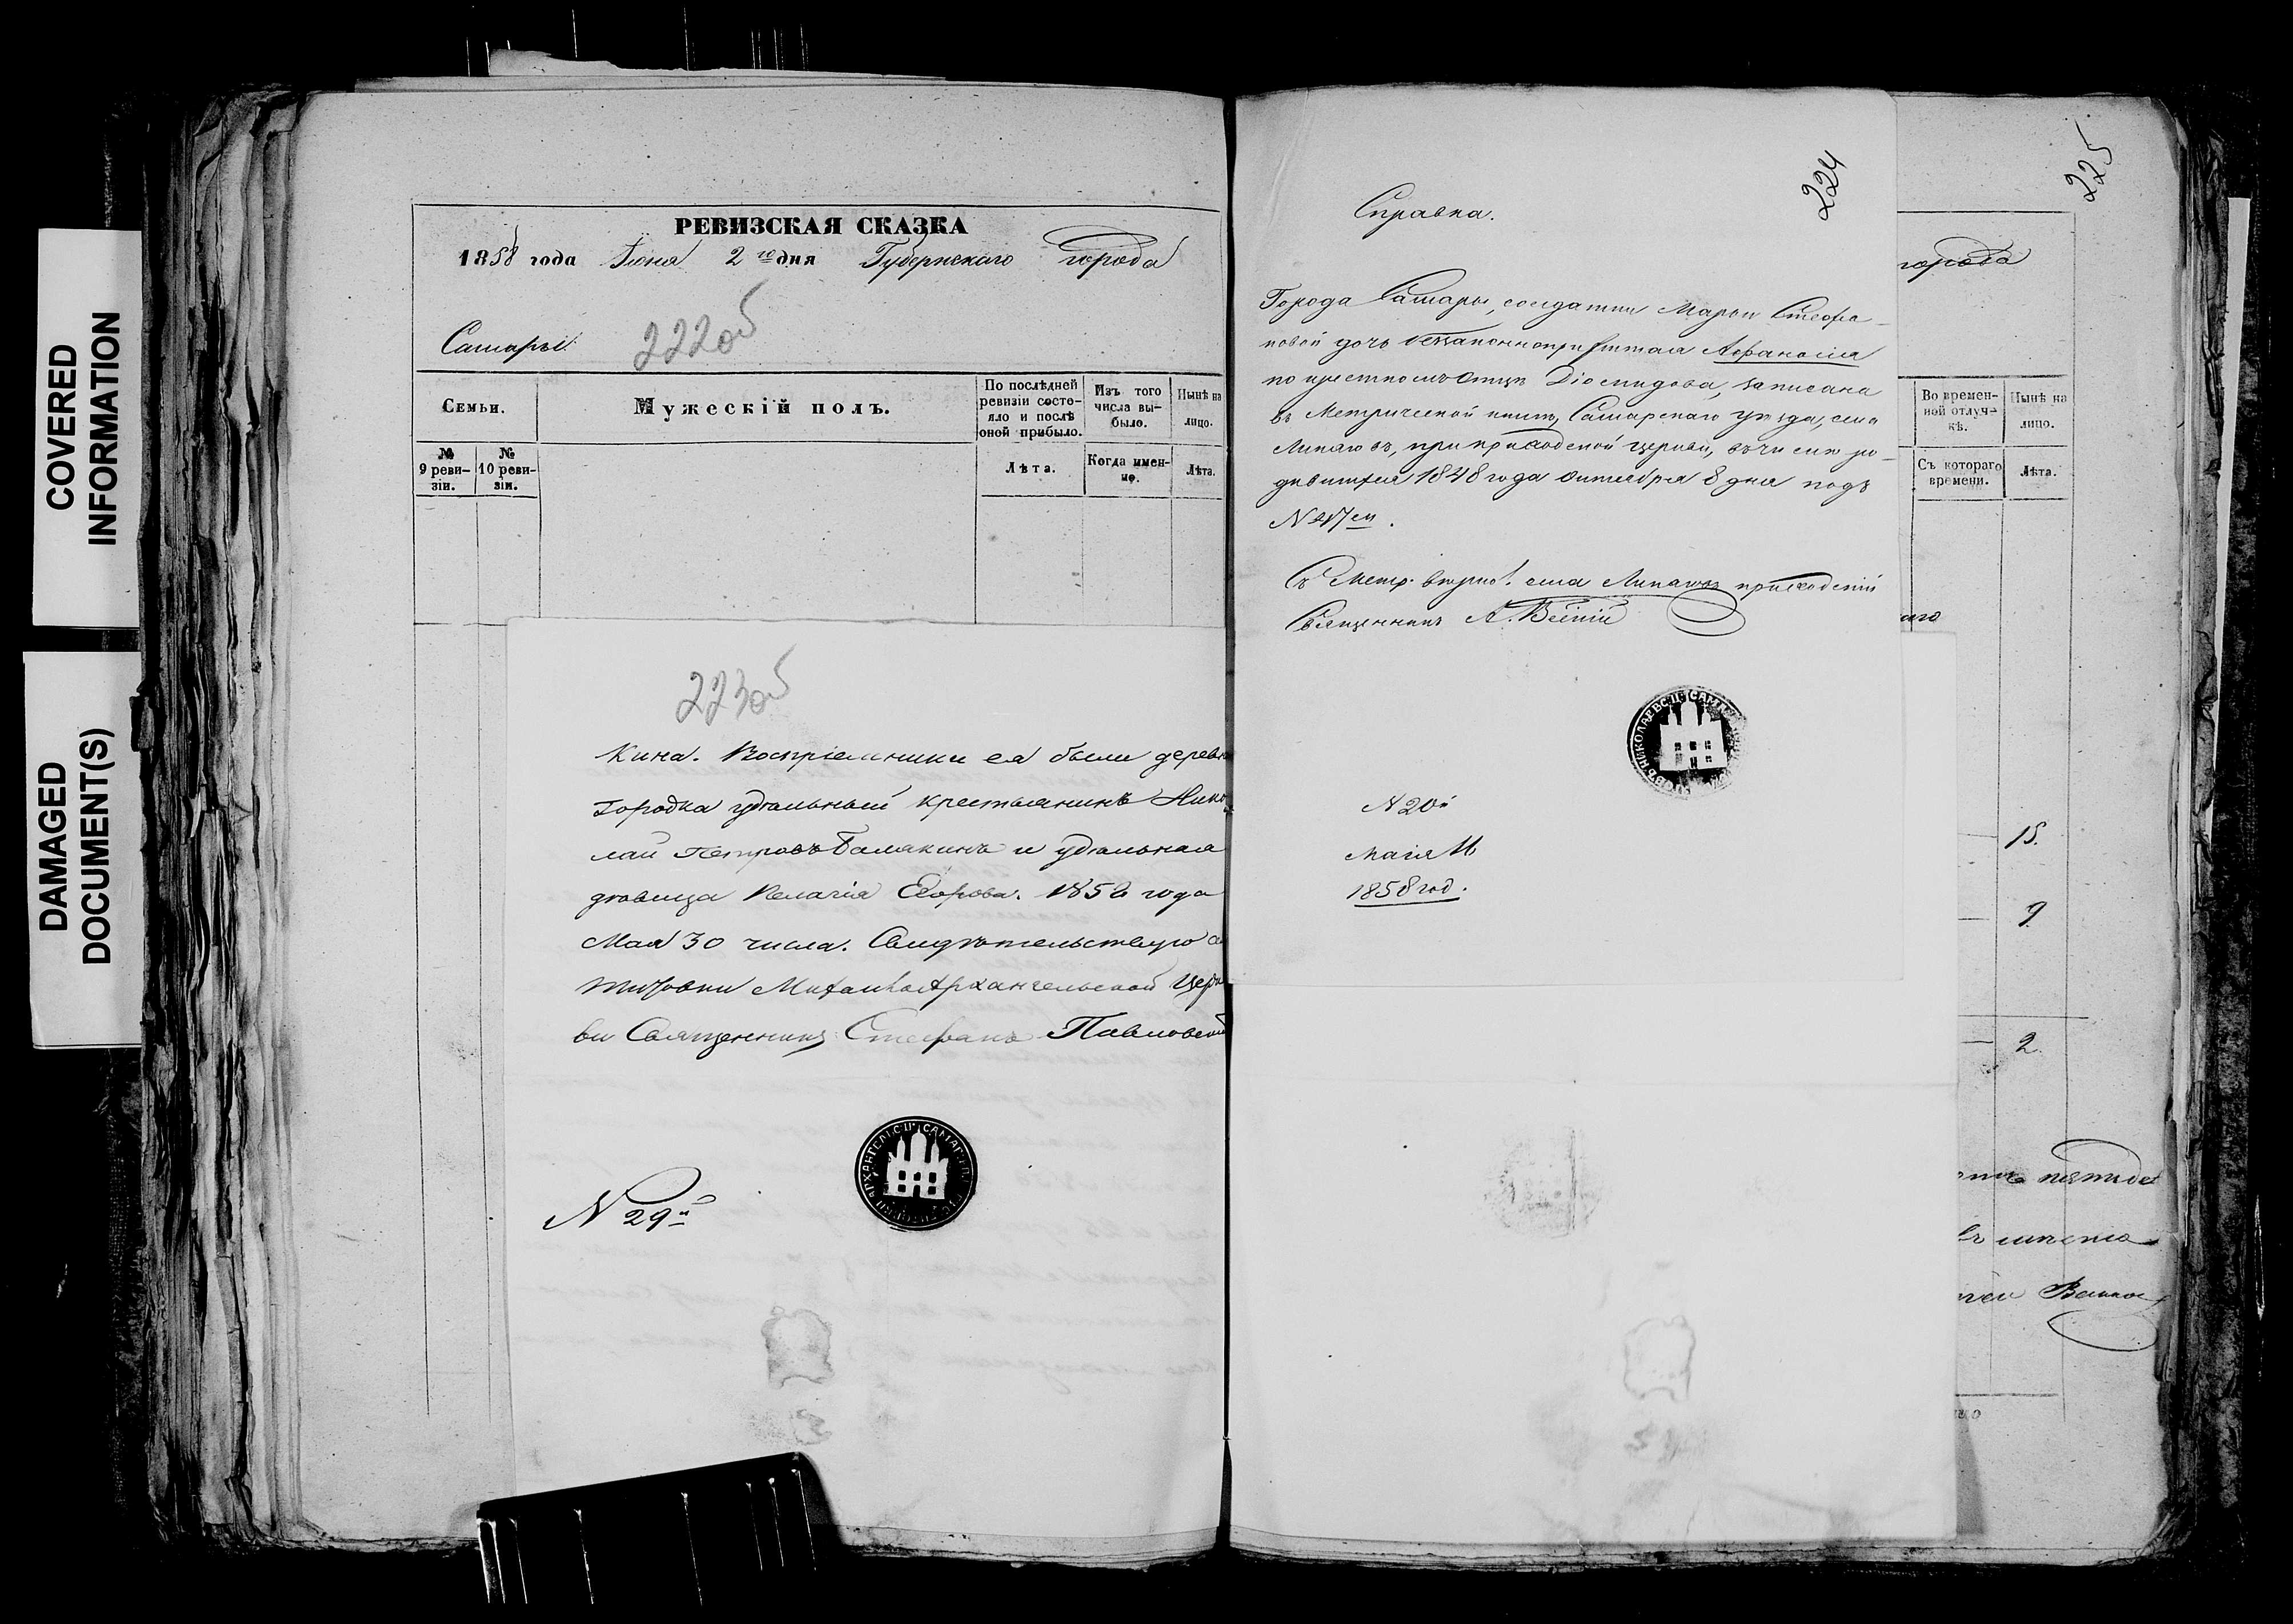 COVERED
INFORMATION
DAMAGED
DOCUMENT(S)
РЕВИЗСКАЯ СКАЗКА
1858 года Іюня 2го дня Губернскаго города
Самары
222об
Семьи.
Мужескій полъ.
По послѣдней ревизіи состояло и послѣ оной прибыло.
Изъ того числа выбыло.
Нынѣ на лицо.
№ 9 ревизіи.
№ 10 ревизіи.
Лѣта.
Когда именно.
Лѣта.
223об
кина. Воспріемники ея были
Городка удѣльный крестьянинъ Нико
лай Петровъ Балакинъ и удѣльная
дѣвица Пелагія 185 года
Мая 30 числа. Свидѣтельствую
Михаило Архангельской Церк
ви Священникъ Стефанъ Павловскій
N 29й
224
Справка.
Города Самары, солдатки Марьи Стефа-
новой дочь незаконноприжитая Афанасія
по крестномъ отцѣ Діомидова, записана
въ Метрической книгѣ, Самарскаго уѣзда, села
Липяговъ, при приходской церкви, въ числѣ ро-
дившихся 1848 года Октября 8 дня подъ
Съ Метр. вѣрно. села Липяговъ приходскій
Священникъ А.
N 20й
Маія 11
1858 год.
225
города
Во временной отлучкѣ.
Нынѣ на лицо.
Съ котораго времени.
Лѣта.
аго
15.
9.
2.
пятиде